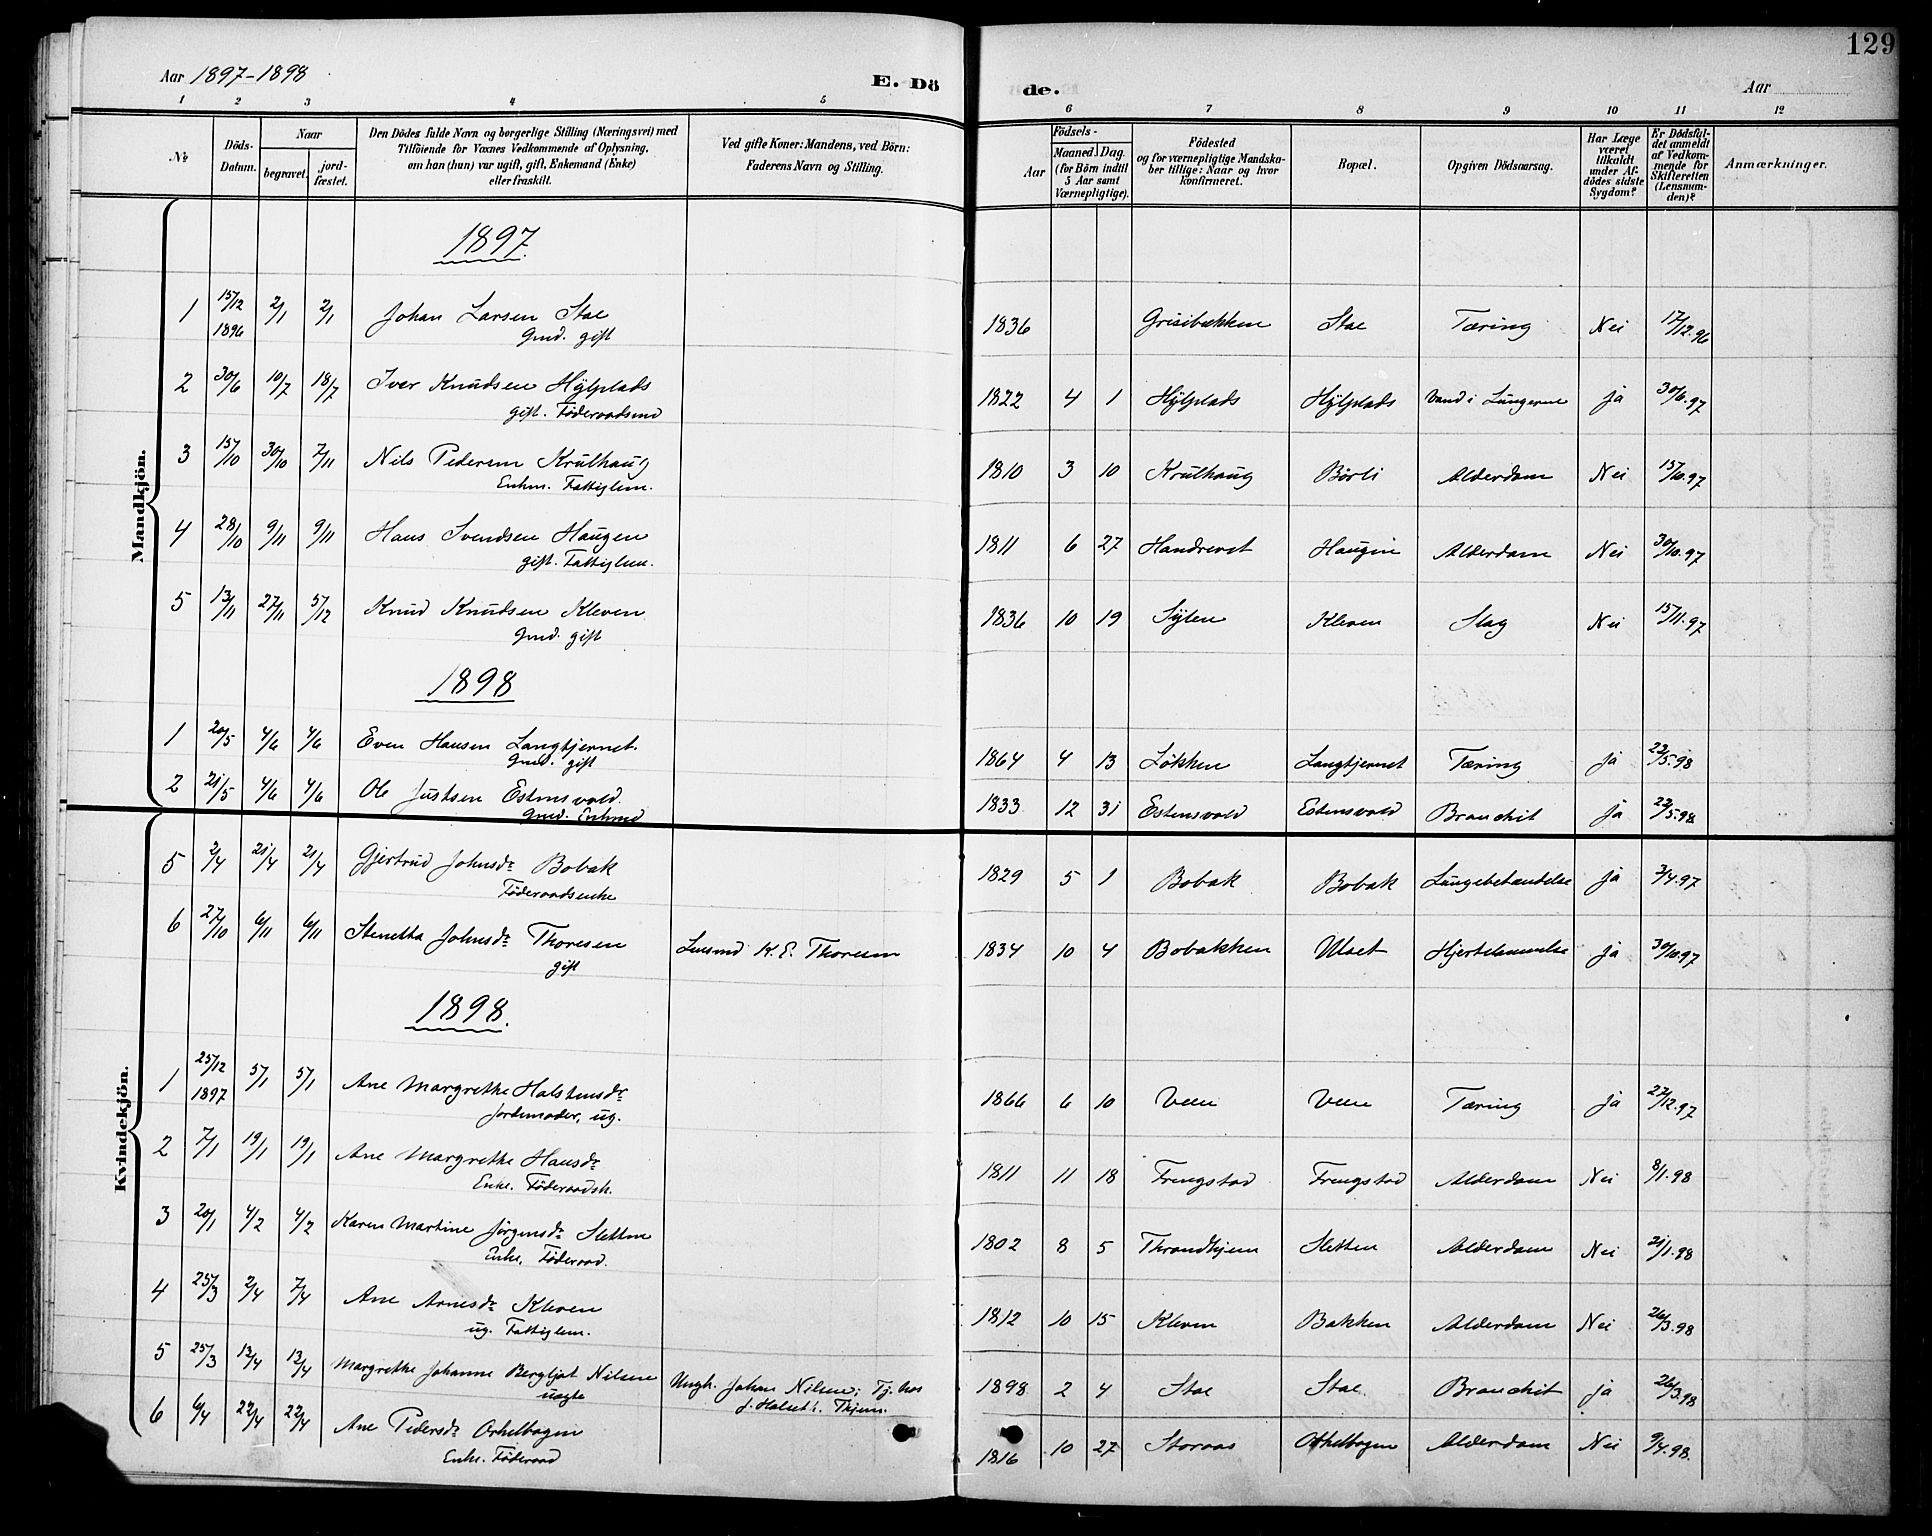 129
Aar 1897-1898
E. Dö de.
Aar
1 2 3 4 5 6 7 8 9 10 11 12
No
Döds-Datum.
Naar begravet. jord-fæstet.
Den Dödes fulde Navn og borgerlige Stilling (Næringsvei) med
Tilföiende for Voxnes Vedkommende af Oplysning,
om han (hun) var ugift, gift, Enkemand (Enke)
eller fraskilt.
Ved gifte Koner: Mandens, ved Börn:
Faderens Navn og Stilling.
Födsels-
Aar Maaned. Dag.
(for Börn indtil
5 Aar samt
Værnepligtige).
Födested
og for værnepligtige Mandska-
ber tillige: Naar og hvor
konfirmeret.
Bopæl.
Opgiven Dödsaarsag.
Har Læge
været
tilkaldt
under Af-
dödes sidste
Sygdom?
Er Dödsfal-
det anmeldt
af Vedkom-
mende for
Skifteretten
(Lensman-
den)?
Anmærkninger.
Mandkjön.
1897.
1 15/12 1896 2/1 2/1 Johan Larsen Stae 1836 Grisibækken Stae Tæring Nei 17/12.96
Gmd. gift
2 30/6 10/7 18/7 Iver Knudsen Hylplads 1822 4 1 Hylplads Hylplads Vand i Lungerne ja 30/6.97
gift. Föderaadsmd
3 15/10 30/10 7/11 Nils Pedersen Krulhaug 1810 3 10 Krulhaug Börli Alderdom Nei 15/10.97
Enkm. Fattiglem.
4 28/10 9/11 9/11 Hans Svendsen Haugen 1811 6 27 Haugen Alderdom Nei 30/10.97
gift. Fattiglem.
5 13/11 27/11 5/12 Knud Knudsen Kleven 1836 10 19 Sylen Kleven Slag Nei 15/11.97
Gmd. gift
1898
1 20/5 4/6 4/6 Even Hansen Langtjernet. 1864 4 13 Lökken Langtjernet Tæring ja 23/5.98
Gmd. gift
2 21/5 4/6 4/6 Ole Justsen Estensvold. 1833 12 31 Estensvold Estensvold Bronchit ja 22/5.98
Gmd. Enkmd
Kvindekjön.
5 2/4 21/4 21/4 Gjertrud Johnsdr Bobak 1829 5 1 Bobak Bobak Lungebetændelse ja 3/4.97
Föderaadsenke
6 27/10 6/11 6/11 Stenetta Johnsdr Thoresen Lensmd K. E. Thoresen 1834 10 4 Bobakken Ulset Hjertelammelse ja 30/10.97
gift
1898.
1 25/12 1897 5/1 5/1 Ane Margrethe Halstensdr 1866 6 10 Veen Veen Tæring ja 27/12.97
Jordemoder, ug.
2 7/1 19/1 19/1 Ane Margrethe Hansdr 1811 11 18 Frengstad Frengstad Alderdom Nei 8/1.98
Enke. Föderaadsk.
3 20/1 4/2 4/2 Karen Martine Jörgensdr Sletten 1802 8 5 Throndhjem Sletten Alderdom Nei 21/1.98
Enke, Föderaad.
4 25/3 2/4 7/4 Ane Arnesdr Kleven 1812 10 15 Kleven Bakken Alderdom Nei 26/3.98
ug. Fattiglem.
5 25/3 13/4 13/4 Margrethe Johanne Bergljot Nilsen Ungk. Johan Nilsen; Tj. hos 1898 2 4 Stae Stae Bronchit ja 26/3.98
uægte J. Halseth. Thjem.
6 6/4 22/4 22/4 Ane Pedersdr Orkelbogen 1816 10 27 Storaas Orkelbogen Alderdom Nei 9/4.98.
Enke. Föderaad